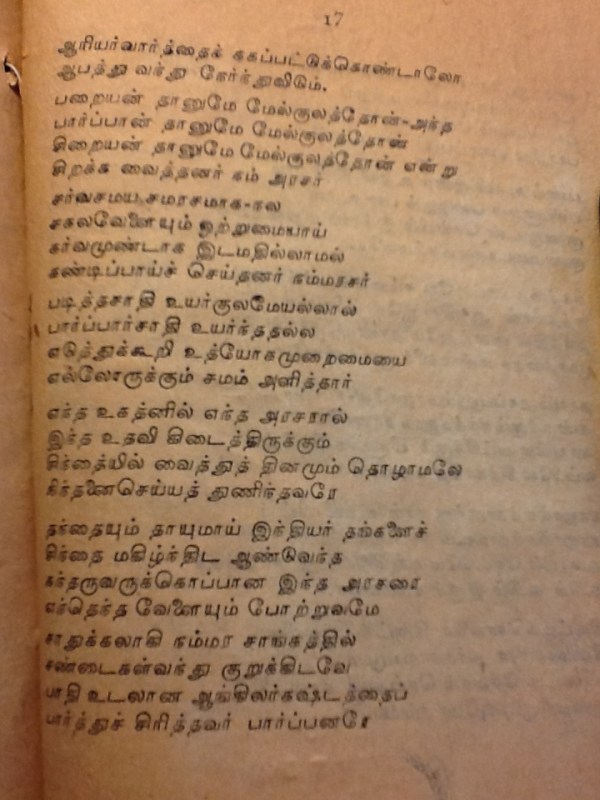 17
ஆரியர்வார்த்தைக் ககப்பட்டுக்கொண்டாலோ
ஆபத்து வந்து நேர்ந்துவிடும்.
பறையன் தானுமே மேல்குலத்தோன்-அந்த
பார்ப்பான் தானுமே மேல்குலத்தோன்
கிறையன் தானுமே மேல்குலத்தோன் என்று
சிறக்க வைத்தனர் நம் அரசர்
சர்வசமய சமரசமாக-நல
சகலவேளையும் ஒற்றுமையாய்
கர்வமுண்டாக இடமதில்லாமல்
கண்டிப்பாய்ச் செய்தனர் நம்மரசர்
படித்தசாதி உயர்குலமேயல்லால்
பார்ப்பார்சாதி உயர்ந்ததல்ல
எடுத்துக்கூறி உத்யோகமுறைமையை
எல்லோருக்கும் சமம் அளித்தார்
எந்த உகத்னில் எந்த அரசரால்
இந்த உதவி கிடைத்திருக்கும்
சிந்தையில் வைத்துத் தினமும் தொழாமலே
சிந்தனைசெய்யத் துணிந்தவரே
தந்தையும் தாயுமாய் இந்தியர் தங்களைச்
சிந்தை மகிழ்ந்திட ஆண்டுவந்த
கந்தருவருக்கொப்பான இந்த அரசரை
எந்தெந்த வேளையும் போற்றுவமே
சாதுக்கலாகி நம்மர சாங்கத்தில்
சண்டைகள்வந்து குறுக்கிடவே
பாதி உடலான ஆங்கிலர்கஷ்டத்தைப்
பார்த்துச் சிரித்தவர் பார்ப்பனரே